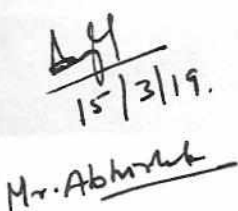 15/3/19.
Mr. Abhishek